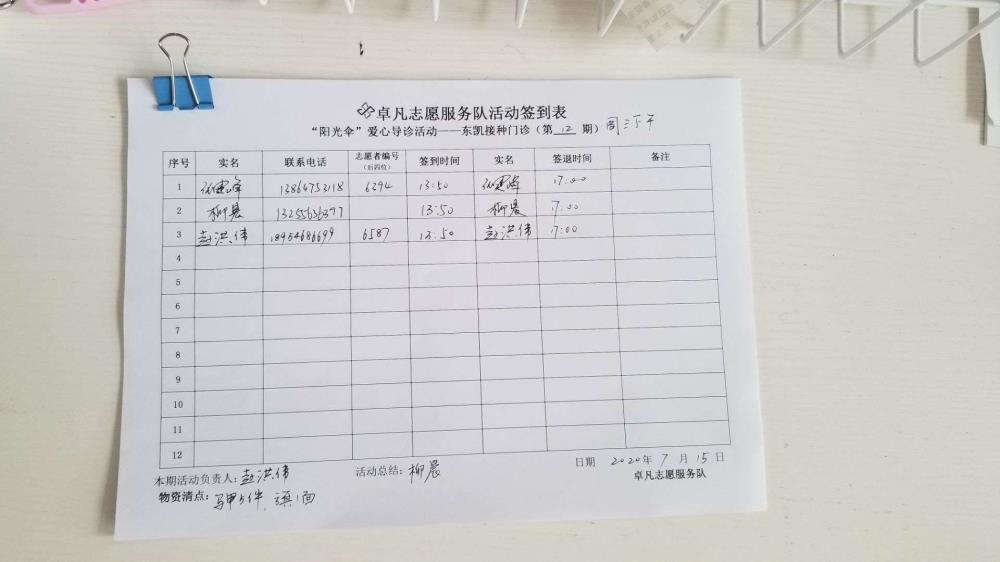 卓凡志愿服务队活动签到表
“阳光伞”爱心导诊活动——东凯接种门诊（第 12 期） 周三下午
序号 实名 联系电话 志愿者编号（后四位） 签到时间 实名 签退时间 备注
1 13864753118 6294 13:50 17:00
2 柳晨 13255636377 13:50 柳晨 17:00
3 赵洪伟 18954686699 6587 13:50 赵洪伟 17:00
4
5
6
7
8
9
10
11
12
日期 2020年 7 月 15 日
本期活动负责人：赵洪伟 活动总结：柳晨
卓凡志愿服务队
物资清点：马甲5件，旗1面